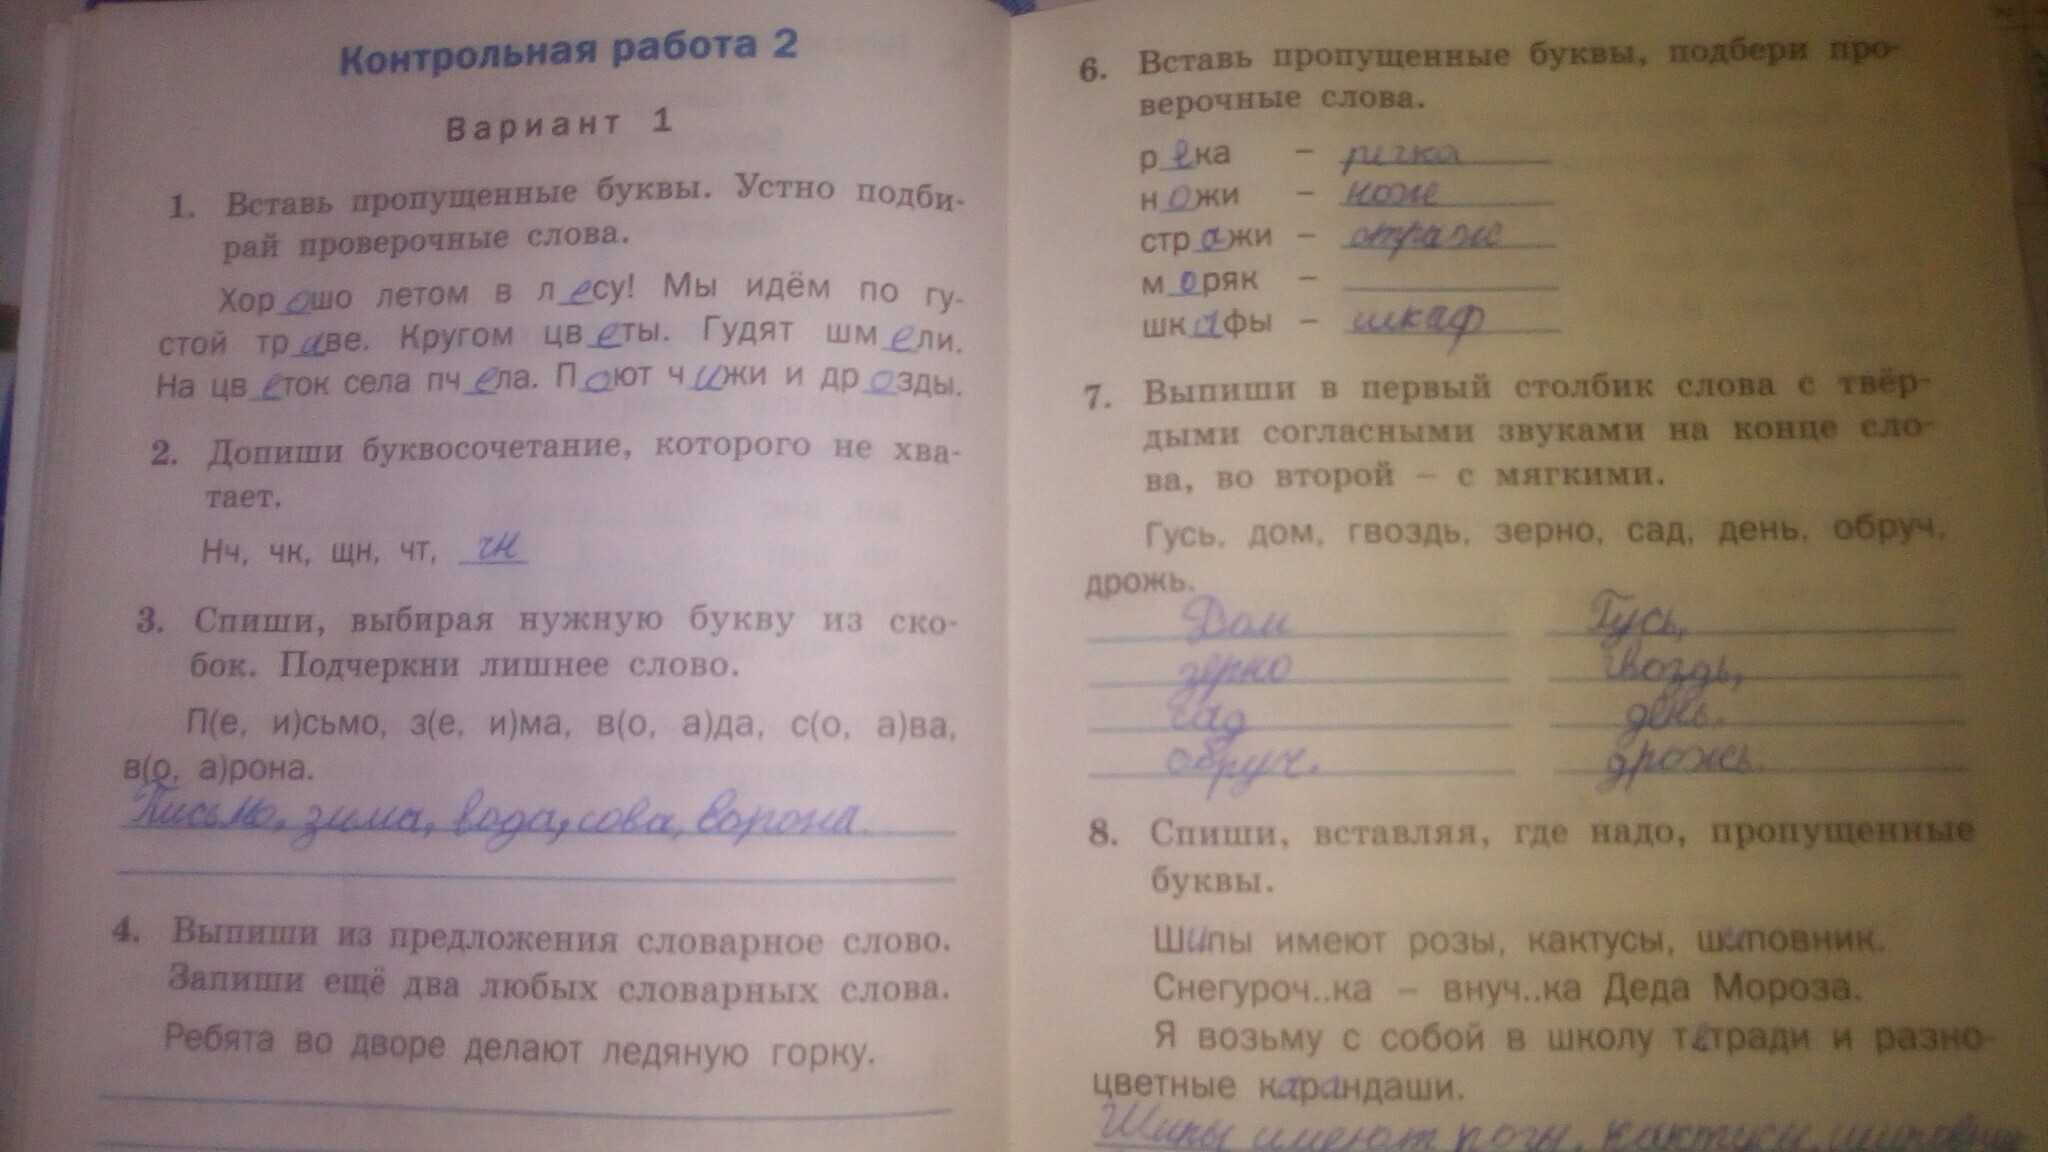 Контрольная работа 2
Вариант 1
1. Вставь пропущенные буквы. Устно подби-
рай проверочные слова.
Хорошо летом в лесу! Мы идём по гу-
стой траве. Кругом цветы. Гудят шмели.
На цветок села пчела. Поют чижи и дрозды.
2. Допиши буквосочетание, которого не хва-
тает.
Нч, чк, щн, чт, чн
3. Спиши, выбирая нужную букву из ско-
бок. Подчеркни лишнее слово.
П(е, и)сьмо, з(е, и)ма, в(о, а)да, с(о, а)ва,
в(о, а)рона.
Письмо, зима, вода, сова, ворона.
4. Выпиши из предложения словарное слово.
Запиши ещё два любых словарных слова.
Ребята во дворе делают ледяную горку.
6. Вставь пропущенные буквы, подбери про-
верочные слова.
река – речка
ножи – нож
стражи – страж
моряк –
шкафы – шкаф
7. Выпиши в первый столбик слова с твёр-
дыми согласными звуками на конце сло-
ва, во второй – с мягкими.
Гусь, дом, гвоздь, зерно, сад, день, обруч,
дрожь.
Дом Гусь,
зерно гвоздь,
сад день.
обруч. дрожь.
8. Спиши, вставляя, где надо, пропущенные
буквы.
Шипы имеют розы, кактусы, шиповник.
Снегуроч..ка – внуч..ка Деда Мороза.
Я возьму с собой в школу тетради и разно-
цветные карандаши.
Шипы имеют розы, кактусы, шиповник